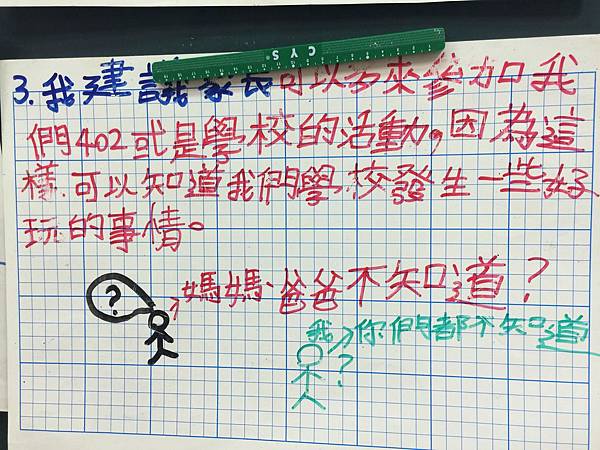 CYS
3. 我建議家長可以多來參加我
們402或是學校的活動,因為這
樣可以知道我們學校發生一些好
玩的事情。
?
媽媽、爸爸不知道?
我
你們都不知道
?